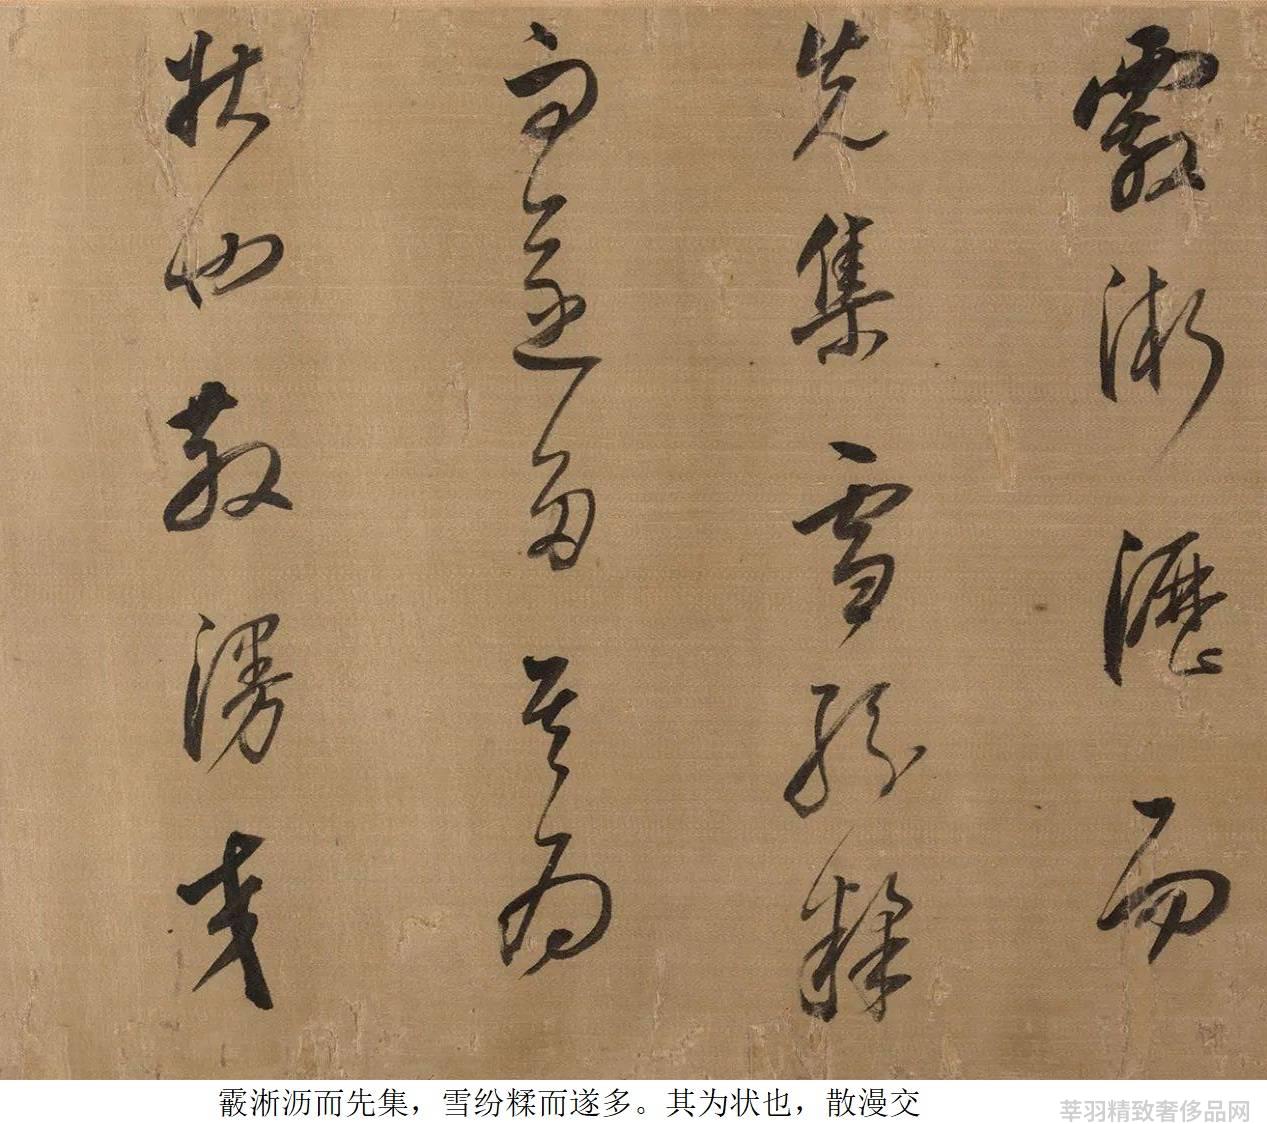 霰淅瀝而
先集雪紛糅
而遂多其為
狀也散漫交
霰淅沥而先集，雪纷糅而遂多。其为状也，散漫交
莘羽精致奢侈品网